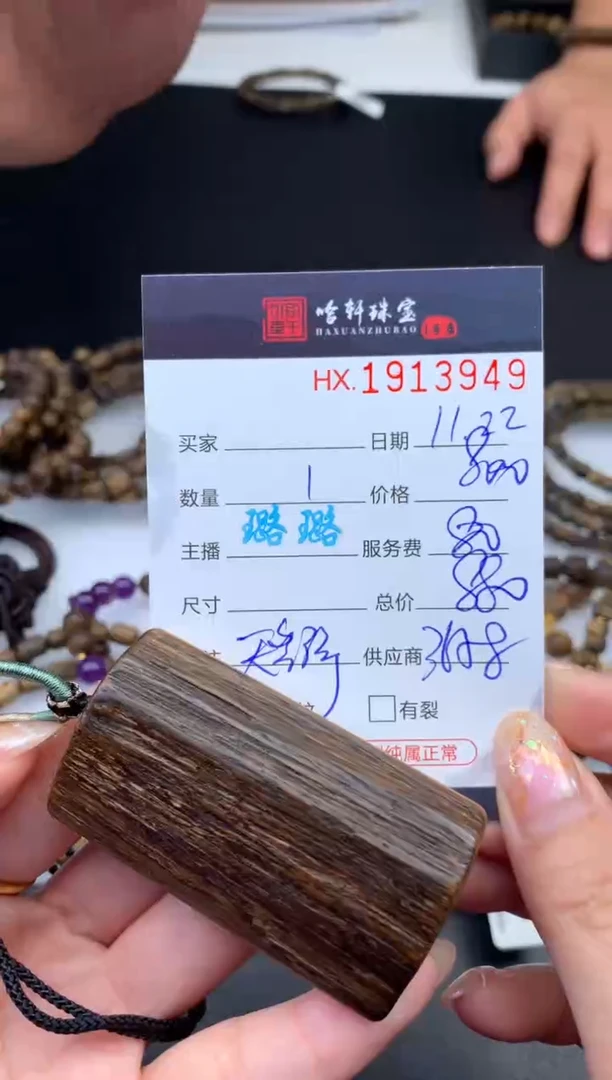 哈轩珠宝
HAXUANZHUBAO
HX.1913949
买家 日期 11.22
数量 1 价格 800
主播 璐璐 服务费 80
尺寸 总价 880
供应商
有裂
纯属正常